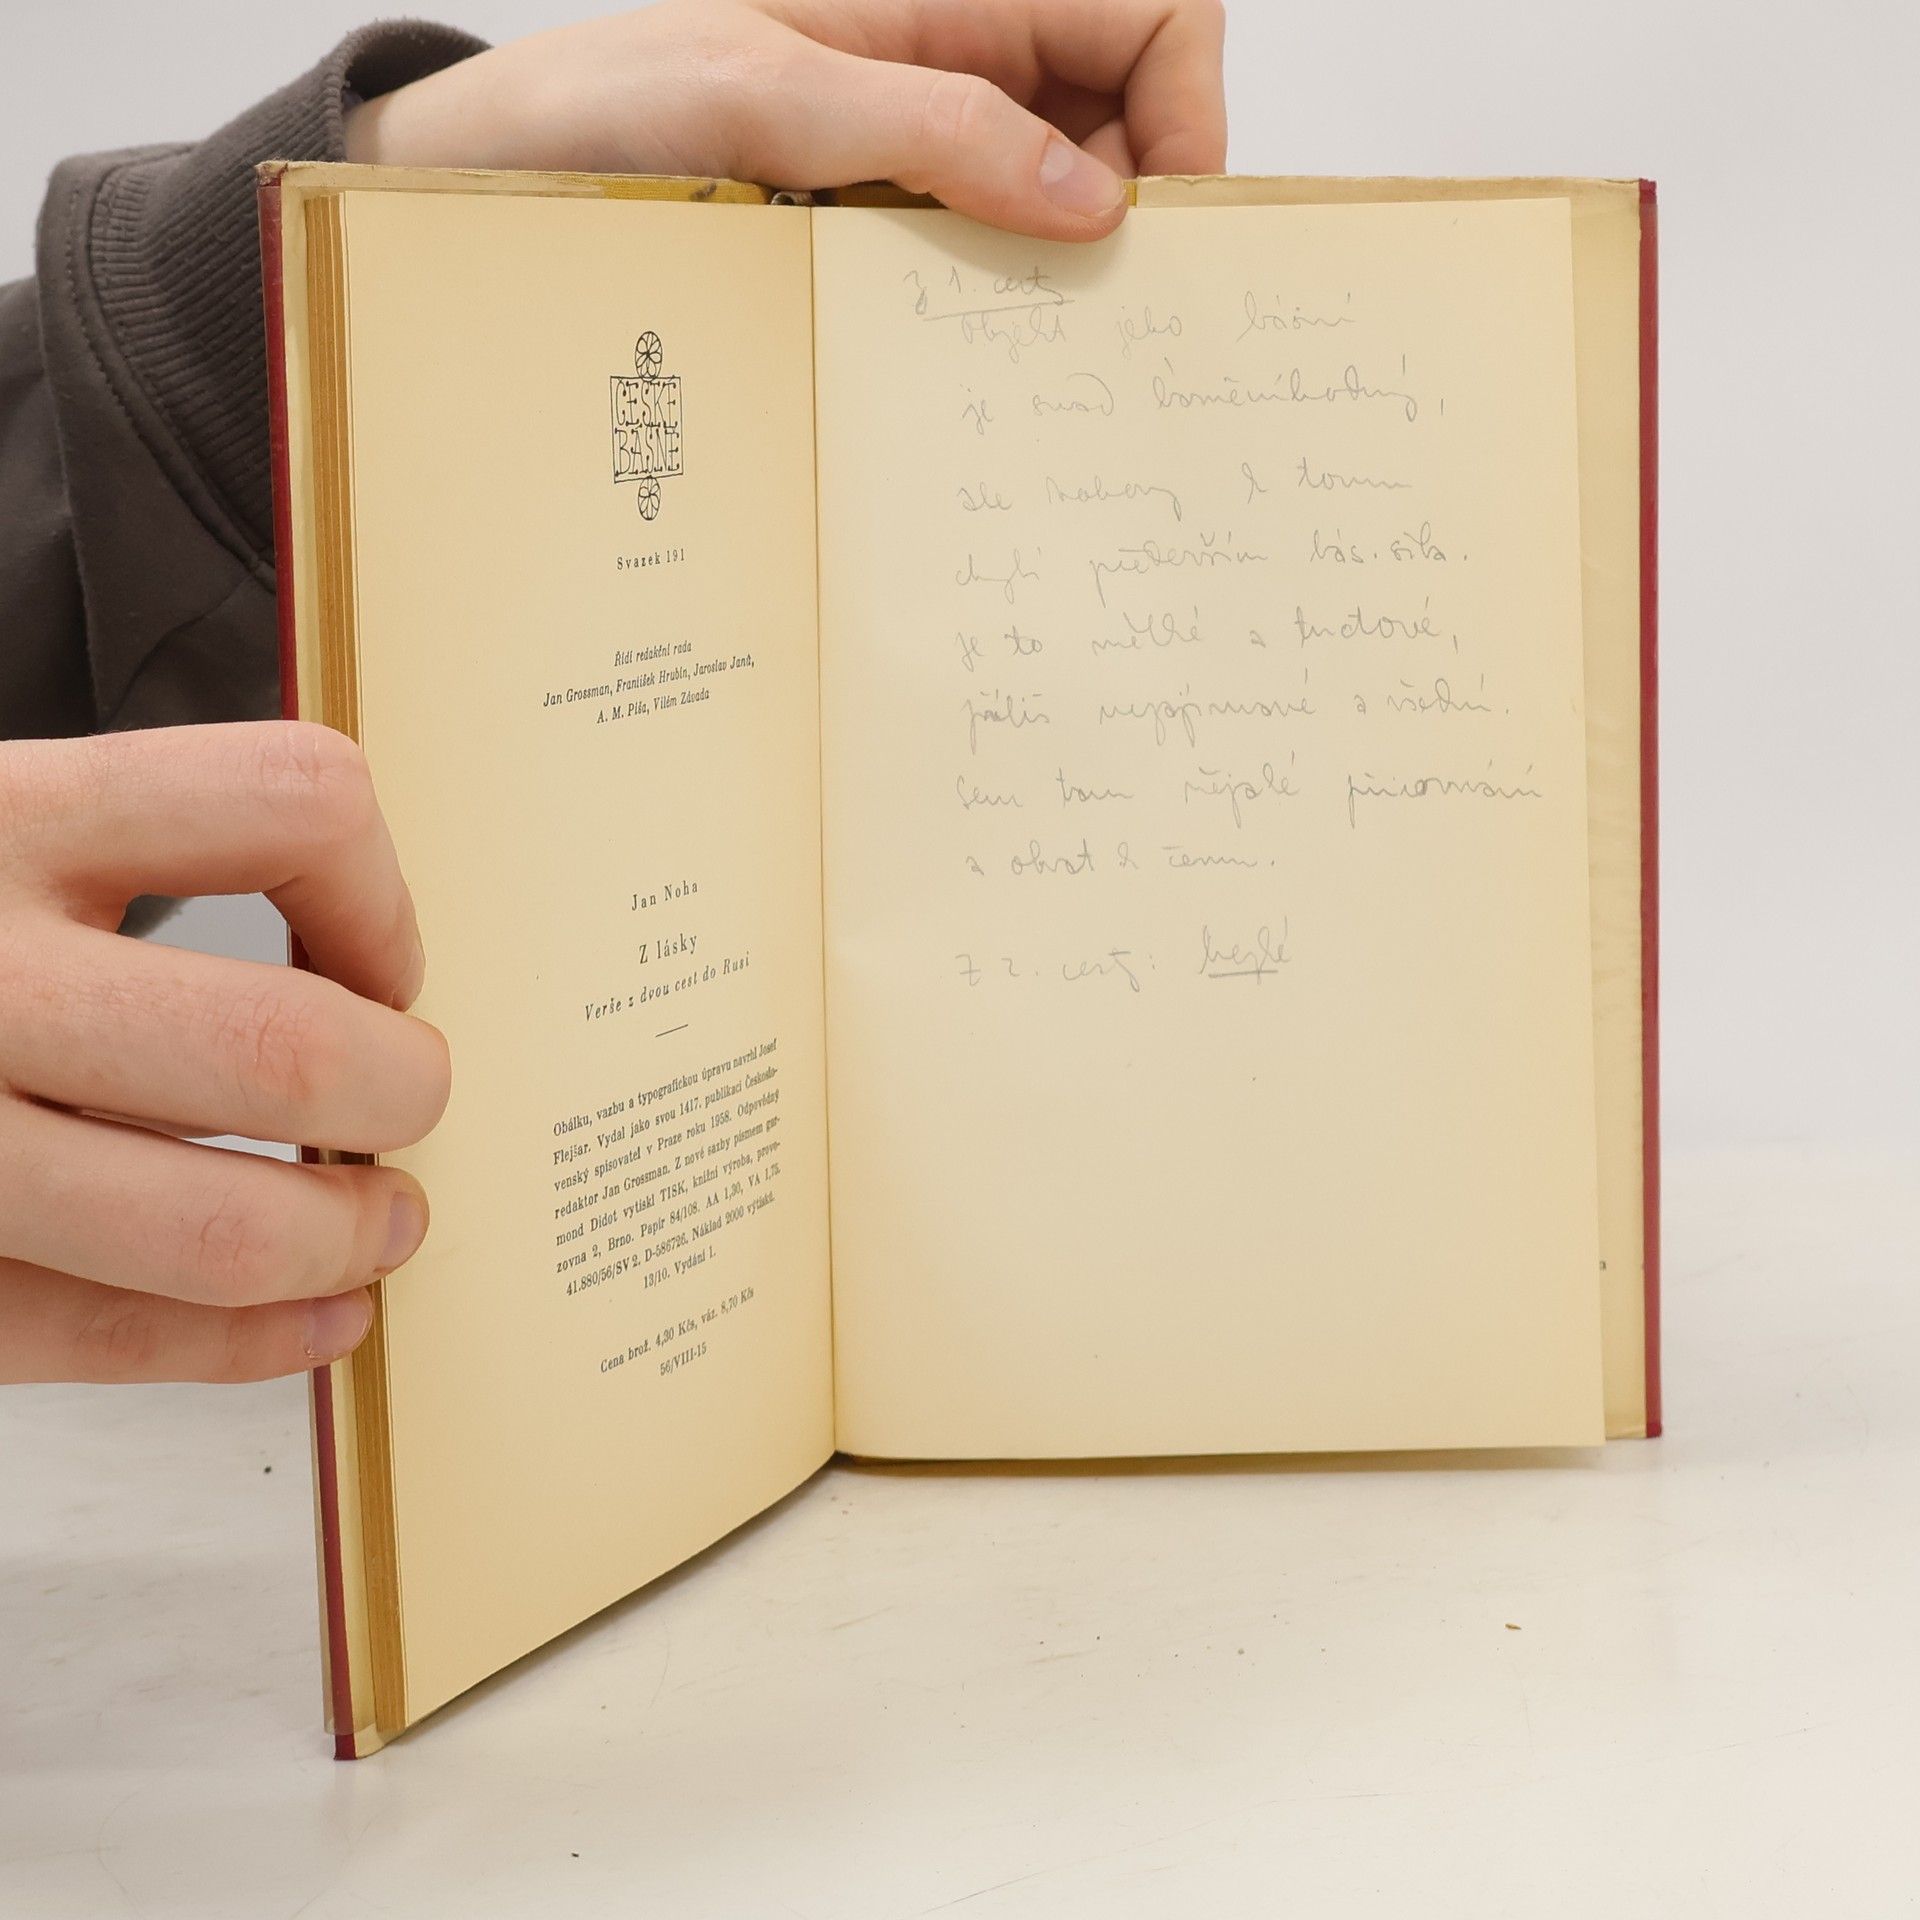 ČESKÉ
BÁSNĚ
Svazek 191
Řídí redakční rada
Jan Grossman, František Hrubín, Jaroslav Janů,
A. M. Píša, Vilém Závada
Jan Noha
Z lásky
Verše z dvou cest do Rusi
Obálku, vazbu a typografickou úpravu navrhl Josef
Flejšar. Vydal jako svou 1417. publikaci Českoslo-
venský spisovatel v Praze roku 1958. Odpovědný
redaktor Jan Grossman. Z nové sazby písmem gar-
mond Didot vytiskl TISK, knižní výroba, provo-
zovna 2, Brno. Papír 84/108. AA 1,30, VA 1,75.
41.880/56/SV 2. D-586726. Náklad 2000 výtisků.
13/10. Vydání 1.
Cena brož. 4,30 Kčs, váz. 8,70 Kčs
56/VIII-15
Z 1. cesty
Objekt jeho básní
je snad básněníhodný,
ale k tomu
chybí především bás. síla.
je to mělké a tuctové,
příliš nezajímavé a všední.
Sem tam nějaké přirovnání
a obrat k čemu.
Z 2. cesty: